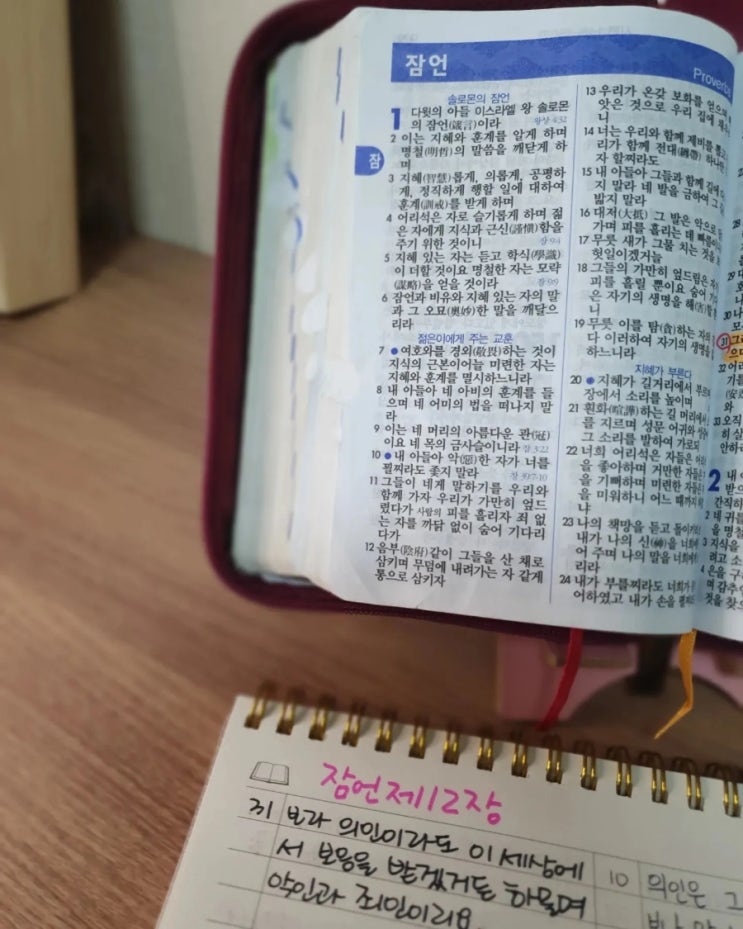 잠언
Proverbs
잠
솔로몬의 잠언
1 다윗의 아들 이스라엘 왕 솔로몬
의 잠언(箴言)이라 왕상 4:32
2 이는 지혜와 훈계를 알게 하며
명철(明哲)의 말씀을 깨닫게 하
며
3 지혜(智慧)롭게, 의롭게, 공평하
게, 정직하게 행할 일에 대하여
훈계(訓戒)를 받게 하며
4 어리석은 자로 슬기롭게 하며 젊
은 자에게 지식과 근신(謹愼)함을
주기 위한 것이니 잠 9:4
5 지혜 있는 자는 듣고 학식(學識)
이 더할 것이요 명철한 자는 모략
(謀略)을 얻을 것이라 잠 9:9
6 잠언과 비유와 지혜 있는 자의 말
과 그 오묘(奧妙)한 말을 깨달으
리라
젊은이에게 주는 교훈
7 ●여호와를 경외(敬畏)하는 것이
지식의 근본이어늘 미련한 자는
지혜와 훈계를 멸시하느니라
8 내 아들아 네 아비의 훈계를 들
으며 네 어미의 법을 떠나지 말
라
9 이는 네 머리의 아름다운 관(冠)
이요 네 목의 금사슬이니라 잠 3:22
10 ●내 아들아 악(惡)한 자가 너를
꾈찌라도 좇지 말라
11 그들이 네게 말하기를 우리와
함께 가자 우리가 가만히 엎드
렸다가 사람의 피를 흘리자 죄 없
는 자를 까닭 없이 숨어 기다리
다가
12 음부(陰府)같이 그들을 산 채로
삼키며 무덤에 내려가는 자 같게
통으로 삼키자
13 우리가 온갖 보화를 얻으며
앗은 것으로 우리 집에
니
14 너는 우리와 함께 제비를 뽑고
리가 함께 전대(纏帶) 하나만
자 할찌라도
15 내 아들아 그들과 함께 길에
지 말라 네 발을 금하여 그
밟지 말라
16 대저(大抵) 그 발은 악으로
가며 피를 흘리는 데 빠름이니
17 무릇 새가 그물 치는 것을
헛일이겠거늘
18 그들의 가만히 엎드림은
피를 흘릴 뿐이요 숨어
은 자기의 생명을 해(害)할
니
19 무릇 이를 탐(貪)하는 자의
다 이러하여 자기의 생명을
하느니라
지혜가 부른다
20 ●지혜가 길거리에서 부르며
장에서 소리를 높이며
21 훤화(喧譁)하는 길 머리에서
를 지르며 성문 어귀와
그 소리를 발하여 가로되
22 너희 어리석은 자들은
을 좋아하며 거만한 자들은
을 기뻐하며 미련한 자들은
을 미워하니 어느 때까지
냐
23 나의 책망을 듣고 돌이키라
내가 나의 신(神)을 너희에게
어 주며 나의 말을 너희에게
리라
24 내가 부를찌라도 너희가
어하였고 내가 손을
31
32
33
2
잠언 제12장
31 보라 의인이라도 이 세상에
서 보응을 받겠거든 하물며
악인과 죄인이리요
10 의인은 그